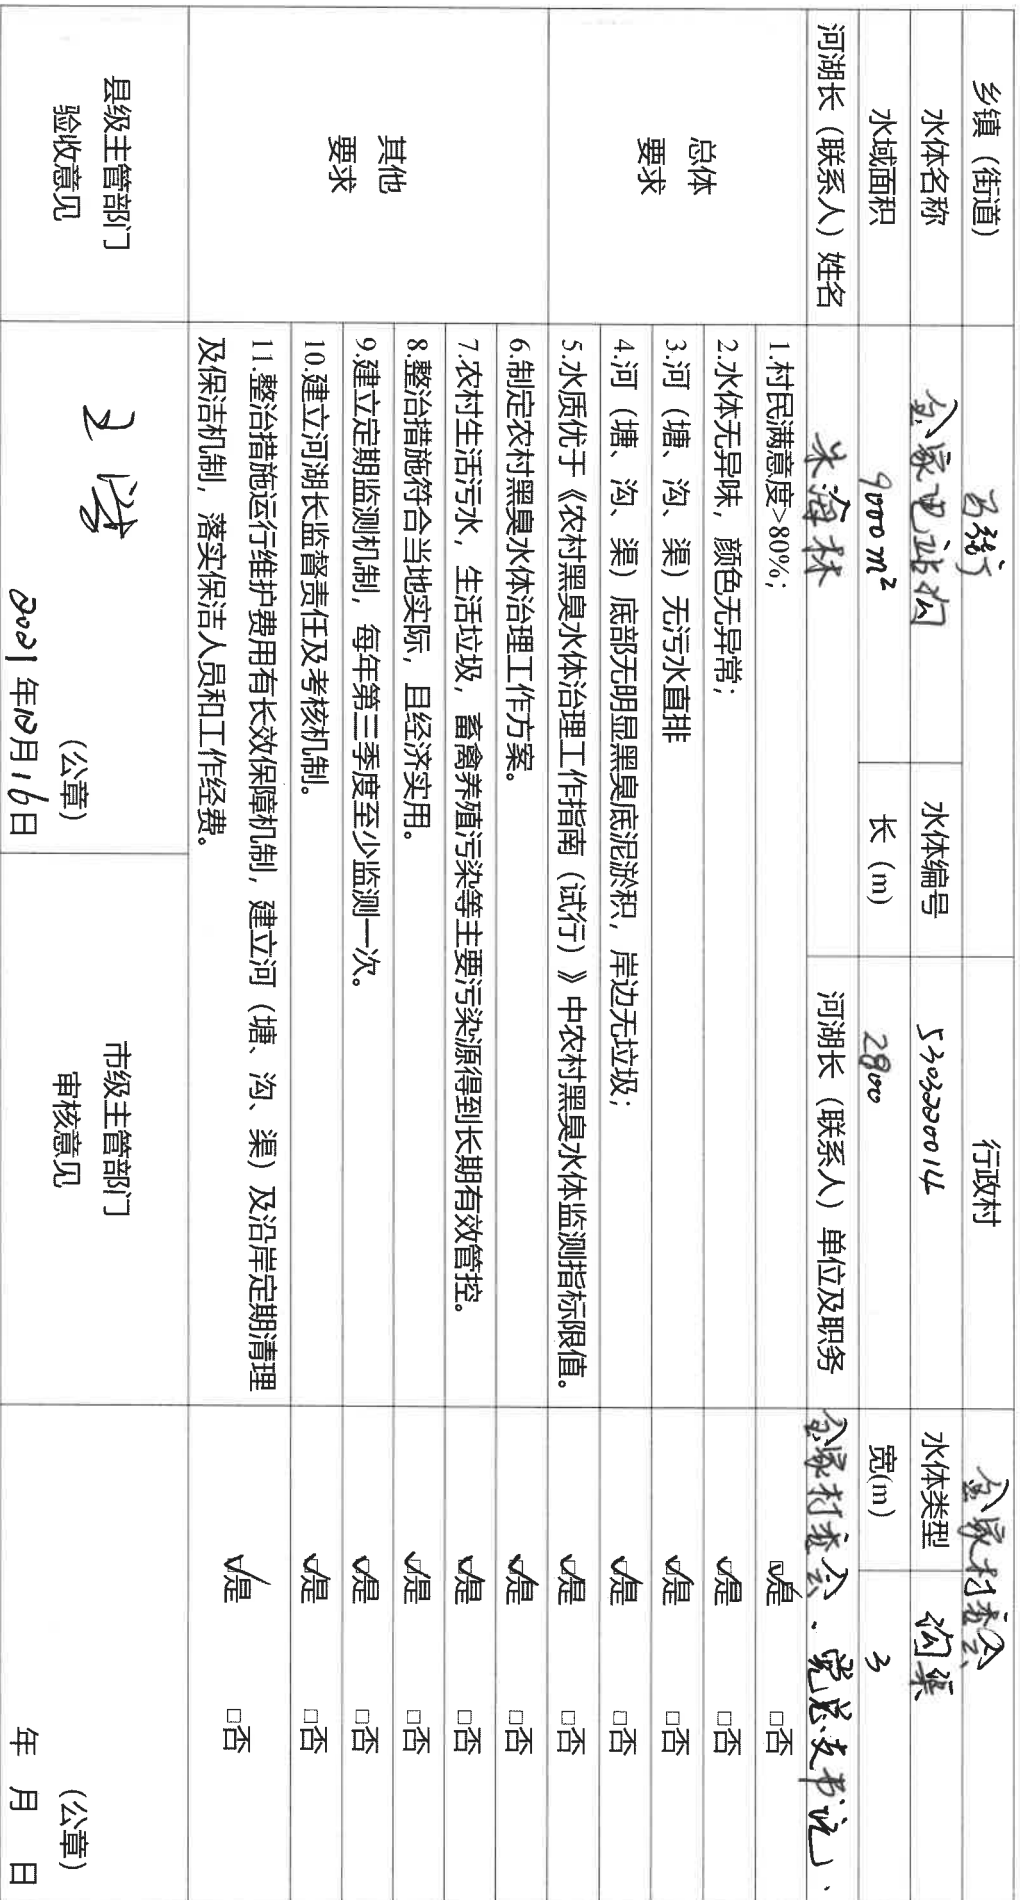 乡镇（街道） 行政村 金家村委会
水体名称 金家电站沟 水体编号 5303220014 水体类型 沟渠
水域面积 9000m² 长（m） 2800 宽(m) 3
河湖长（联系人）姓名 朱海林 河湖长（联系人）单位及职务 金家村委会、党总支书记、
总体
要求
1.村民满意度>80%； ☑是 □否
2.水体无异味，颜色无异常； ☑是 □否
3.河（塘、沟、渠）无污水直排 ☑是 □否
4.河（塘、沟、渠）底部无明显黑臭底泥淤积，岸边无垃圾； ☑是 □否
5.水质优于《农村黑臭水体治理工作指南（试行）》中农村黑臭水体监测指标限值。 ☑是 □否
其他
要求
6.制定农村黑臭水体治理工作方案。 ☑是 □否
7.农村生活污水，生活垃圾，畜禽养殖污染等主要污染源得到长期有效管控。 ☑是 □否
8.整治措施符合当地实际，且经济实用。 ☑是 □否
9.建立定期监测机制，每年第三季度至少监测一次。 ☑是 □否
10.建立河湖长监督责任及考核机制。 ☑是 □否
11.整治措施运行维护费用有长效保障机制，建立河（塘、沟、渠）及沿岸定期清理
及保洁机制，落实保洁人员和工作经费。 ☑是 □否
县级主管部门
验收意见
（公章）
2021年12月16日
市级主管部门
审核意见
（公章）
年 月 日